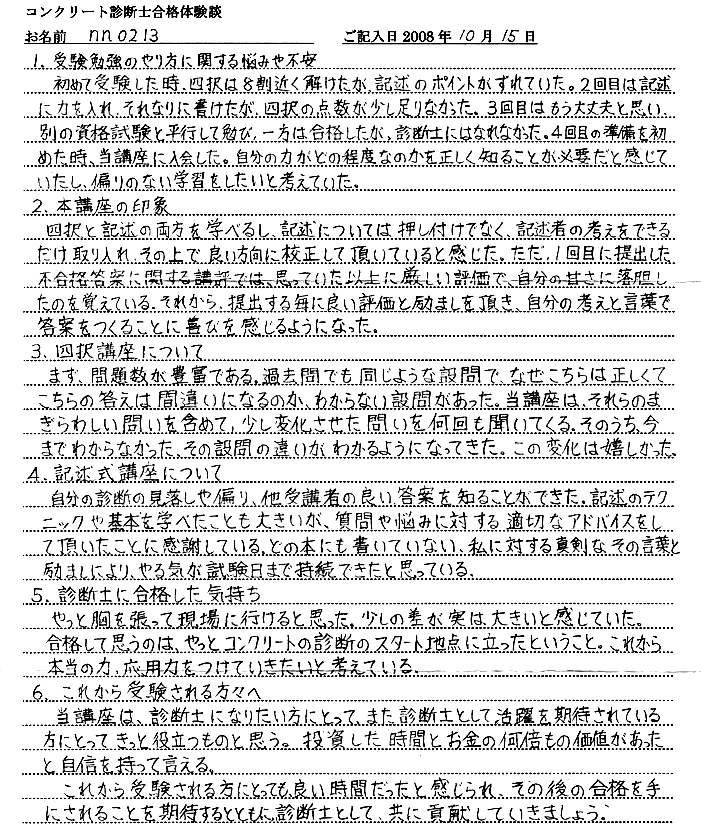 コンクリート診断士合格体験談
お名前 nn0213 ご記入日2008年10月15日
1. 受験勉強のやり方に関する悩みや不安
初めて受験した時、四択は8割近く解けたが、記述のポイントがずれていた。2回目は記述
に力を入れ、それなりに書けたが、四択の点数が少し足りなかった。3回目はもう大丈夫と思い、
別の資格試験と平行して勉び、一方は合格したが、診断士にはなれなかった。4回目の準備を初
めた時、当講座に入会した。自分の力がどの程度なのかを正しく知ることが必要だと感じて
いたし、偏りのない学習をしたいと考えていた。
2. 本講座の印象
四択と記述の両方を学べるし、記述については押し付けでなく、記述者の考えをできる
だけ取り入れ、その上で良い方向に校正して頂いていると感じた。ただ、1回目に提出した
不合格答案に関する講評では、思っていた以上に厳しい評価で、自分の甘さに落胆し
たのを覚えている。それから、提出する毎に良い評価と励ましを頂き、自分の考えと言葉で
答案をつくることに喜びを感じるようになった。
3. 四択講座について
まず、問題数が豊富である。過去問でも同じような設問で、なぜこちらは正しくて
こちらの答えは間違いになるのか、わからない設問があった。当講座は、それらのま
ぎらわしい問いを含めて、少し変化させた問いを何回も聞いてくる。そのうち、今
までわからなかった、その設問の違いがわかるようになってきた。この変化は嬉しかった。
4. 記述式講座について
自分の診断の見落しや偏り、他受講者の良い答案を知ることができた。記述のテク
ニックや基本を学べたことも大きいが、質問や悩みに対する適切なアドバイスをし
て頂いたことに感謝している。どの本にも書いていない、私に対する真剣なその言葉と
励ましにより、やる気が試験日まで持続できたと思っている。
5. 診断士に合格した気持ち
やっと胸を張って現場に行けると思った。少しの差が実は大きいと感じていた。
合格して思うのは、やっとコンクリートの診断のスタート地点に立ったということ。これから
本当の力、応用力をつけていきたいと考えている。
6. これから受験される方々へ
当講座は、診断士になりたい方にとって、また診断士として活躍を期待されている
方にとってきっと役立つものと思う。投資した時間とお金の何倍もの価値があった
と自信を持って言える。
これから受験される方にとっても良い時間だったと感じられ、その後の合格を手
にされることを期待するとともに、診断士として、共に貢献していきましょう。